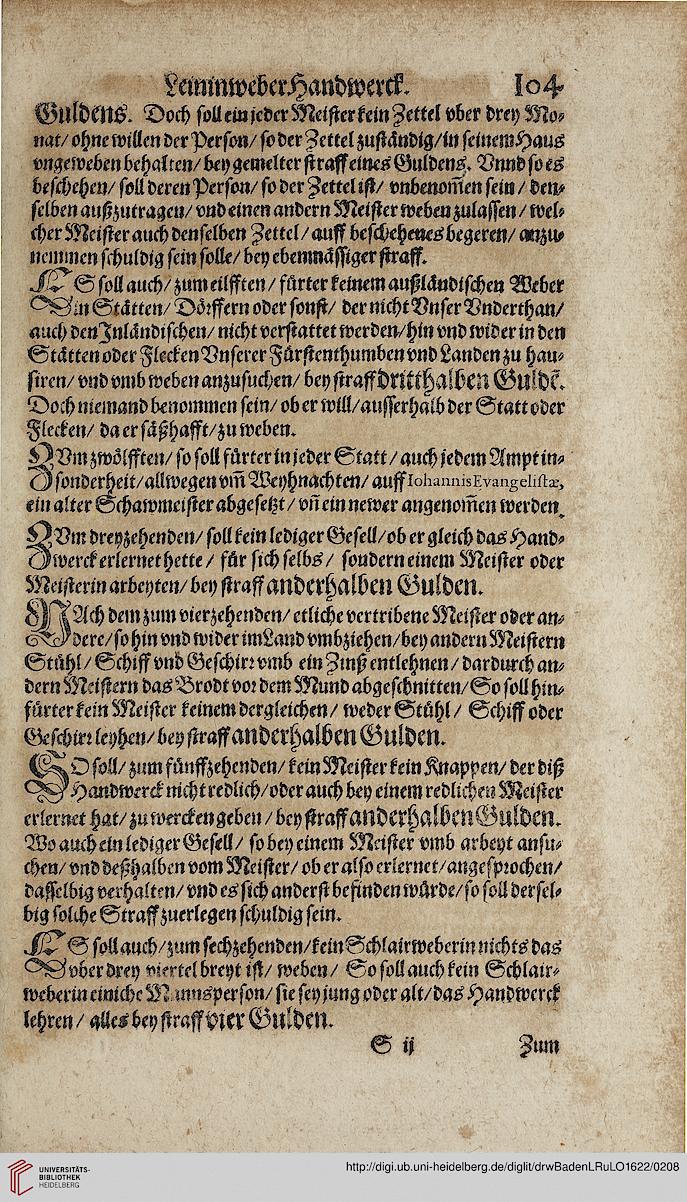 LeininweberHandwerck. 104
Guldens. Doch soll ein jeder Meister kein Zettel vber drey Mo⸗
nat/ ohne willen der Person/ so der Zettel zuständig/ in seinem Haus
vngeweben behalten/ bey gemelter straff eines Guldens. Vnnd so es
beschehen/ soll deren Person/ so der Zettel ist/ vnbenom̃en sein/ den⸗
selben außzutragen/ vnd einen andern Meister weben zulassen/ wel⸗
cher Meister auch denselben Zettel/ auff beschehenes begeren/ anzu⸗
nemmen schuldig sein solle/ bey ebenmässiger straff.
ES soll auch/ zum eilfften/ fürter keinem außländischen Weber
in Stätten/ Dörffern oder sonst/ der nicht Vnser Vnderthan/
auch den Inländischen/ nicht verstattet werden/ hin vnd wider in den
Stätten oder Flecken Vnserer Fürstenthumben vnd Landen zu hau⸗
siren/ vnd vmb weben anzusuchen/ bey straff dritthalben Guldẽ.
Doch niemand benommen sein/ ob er will/ ausserhalb der Statt oder
Flecken/ da er säßhafft/ zu weben.
ZVm zwölfften/ so soll fürter in jeder Statt/ auch jedem Ampt in⸗
sonderheit/ allwegen vm̃ Weyhnachten/ auff Iohannis Evangelistæ,
ein alter Schawmeister abgesetzt/ vñ ein newer angenom̃en werden.
ZVm dreyzehenden/ soll kein lediger Gesell/ ob er gleich das Hand⸗
werck erlernet hette/ für sich selbs/ sondern einem Meister oder
Meisterin arbeyten/ bey straff anderhalben Gulden.
NAch dem zum vierzehenden/ etliche vertribene Meister oder an⸗
dere/ so hin vnd wider im Land vmbziehen/ bey andern Meistern
Stühl/ Schiff vnd Geschirr vmb ein Zinß entlehnen/ dardurch an⸗
dern Meistern das Brodt vor dem Mund abgeschnitten/ So soll hin⸗
fürter kein Meister keinem dergleichen/ weder Stühl/ Schiff oder
Geschirr leyhen/ bey straff anderhalben Gulden.
SO soll/ zum fünffzehenden/ kein Meister kein Knappen/ der diß
Handwerck nicht redlich/ oder auch bey einem redlichen Meister
erlernet hat/ zu wercken geben/ bey straff anderhalben Gulden.
Wo auch ein lediger Gesell/ so bey einem Meister vmb arbeyt ansu⸗
chen/ vnd deßhalben vom Meister/ ob er also erlernet/ angesprochen/
dasselbig verhalten/ vnd es sich anderst befinden würde/ so soll dersel⸗
big solche Straff zuerlegen schuldig sein.
ES soll auch/ zum sechzehenden/ kein Schlairweberin nichts das
vber drey viertel breyt ist/ weben/ So soll auch kein Schlair⸗
weberin einiche Mannsperson/ sie sey jung oder alt/ das Handwerck
lehren/ alles bey straff vier Gulden.
S ij Zum
UNIVERSITÄTS-
BIBLIOTHEK
HEIDELBERG
http://digi.ub.uni-heidelberg.de/diglit/drwBadenLRuLO1622/0208